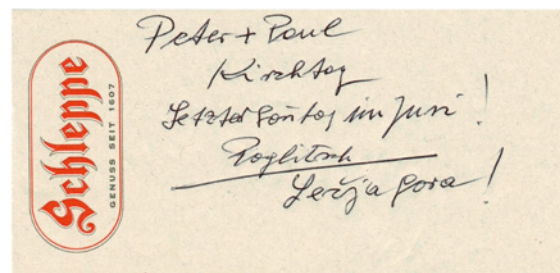 Schleppe
GENUSS SEIT 1607
Peter + Paul
Kirchtag
Letzter Sonntag im Juni!
Roglitsch
Ležja gora!